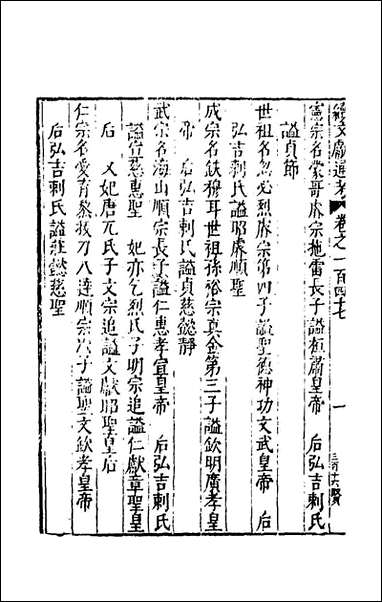 續文獻通考
卷之一百四十七
一
憲宗名蒙哥睿宗拖雷長子謚桓肅皇帝　后弘吉剌氏
謚貞節
世祖名忽必烈睿宗第四子謚聖德神功文武皇帝　后
弘吉剌氏謚昭睿順聖
成宗名鉄穆耳世祖孫裕宗真金第三子謚欽明廣孝皇
帝　后弘吉剌氏謚貞慈懿靜
武宗名海山順宗長子謚仁惠孝宣皇帝　后弘吉剌氏
謚宣慈惠聖　妃亦乞烈氏子明宗追謚仁獻章聖皇
后　又妃唐兀氏子文宗追謚文獻昭聖皇后
仁宗名愛育黎拔力八達順宗次子謚聖文欽孝皇帝
后弘吉剌氏謚莊懿慈聖